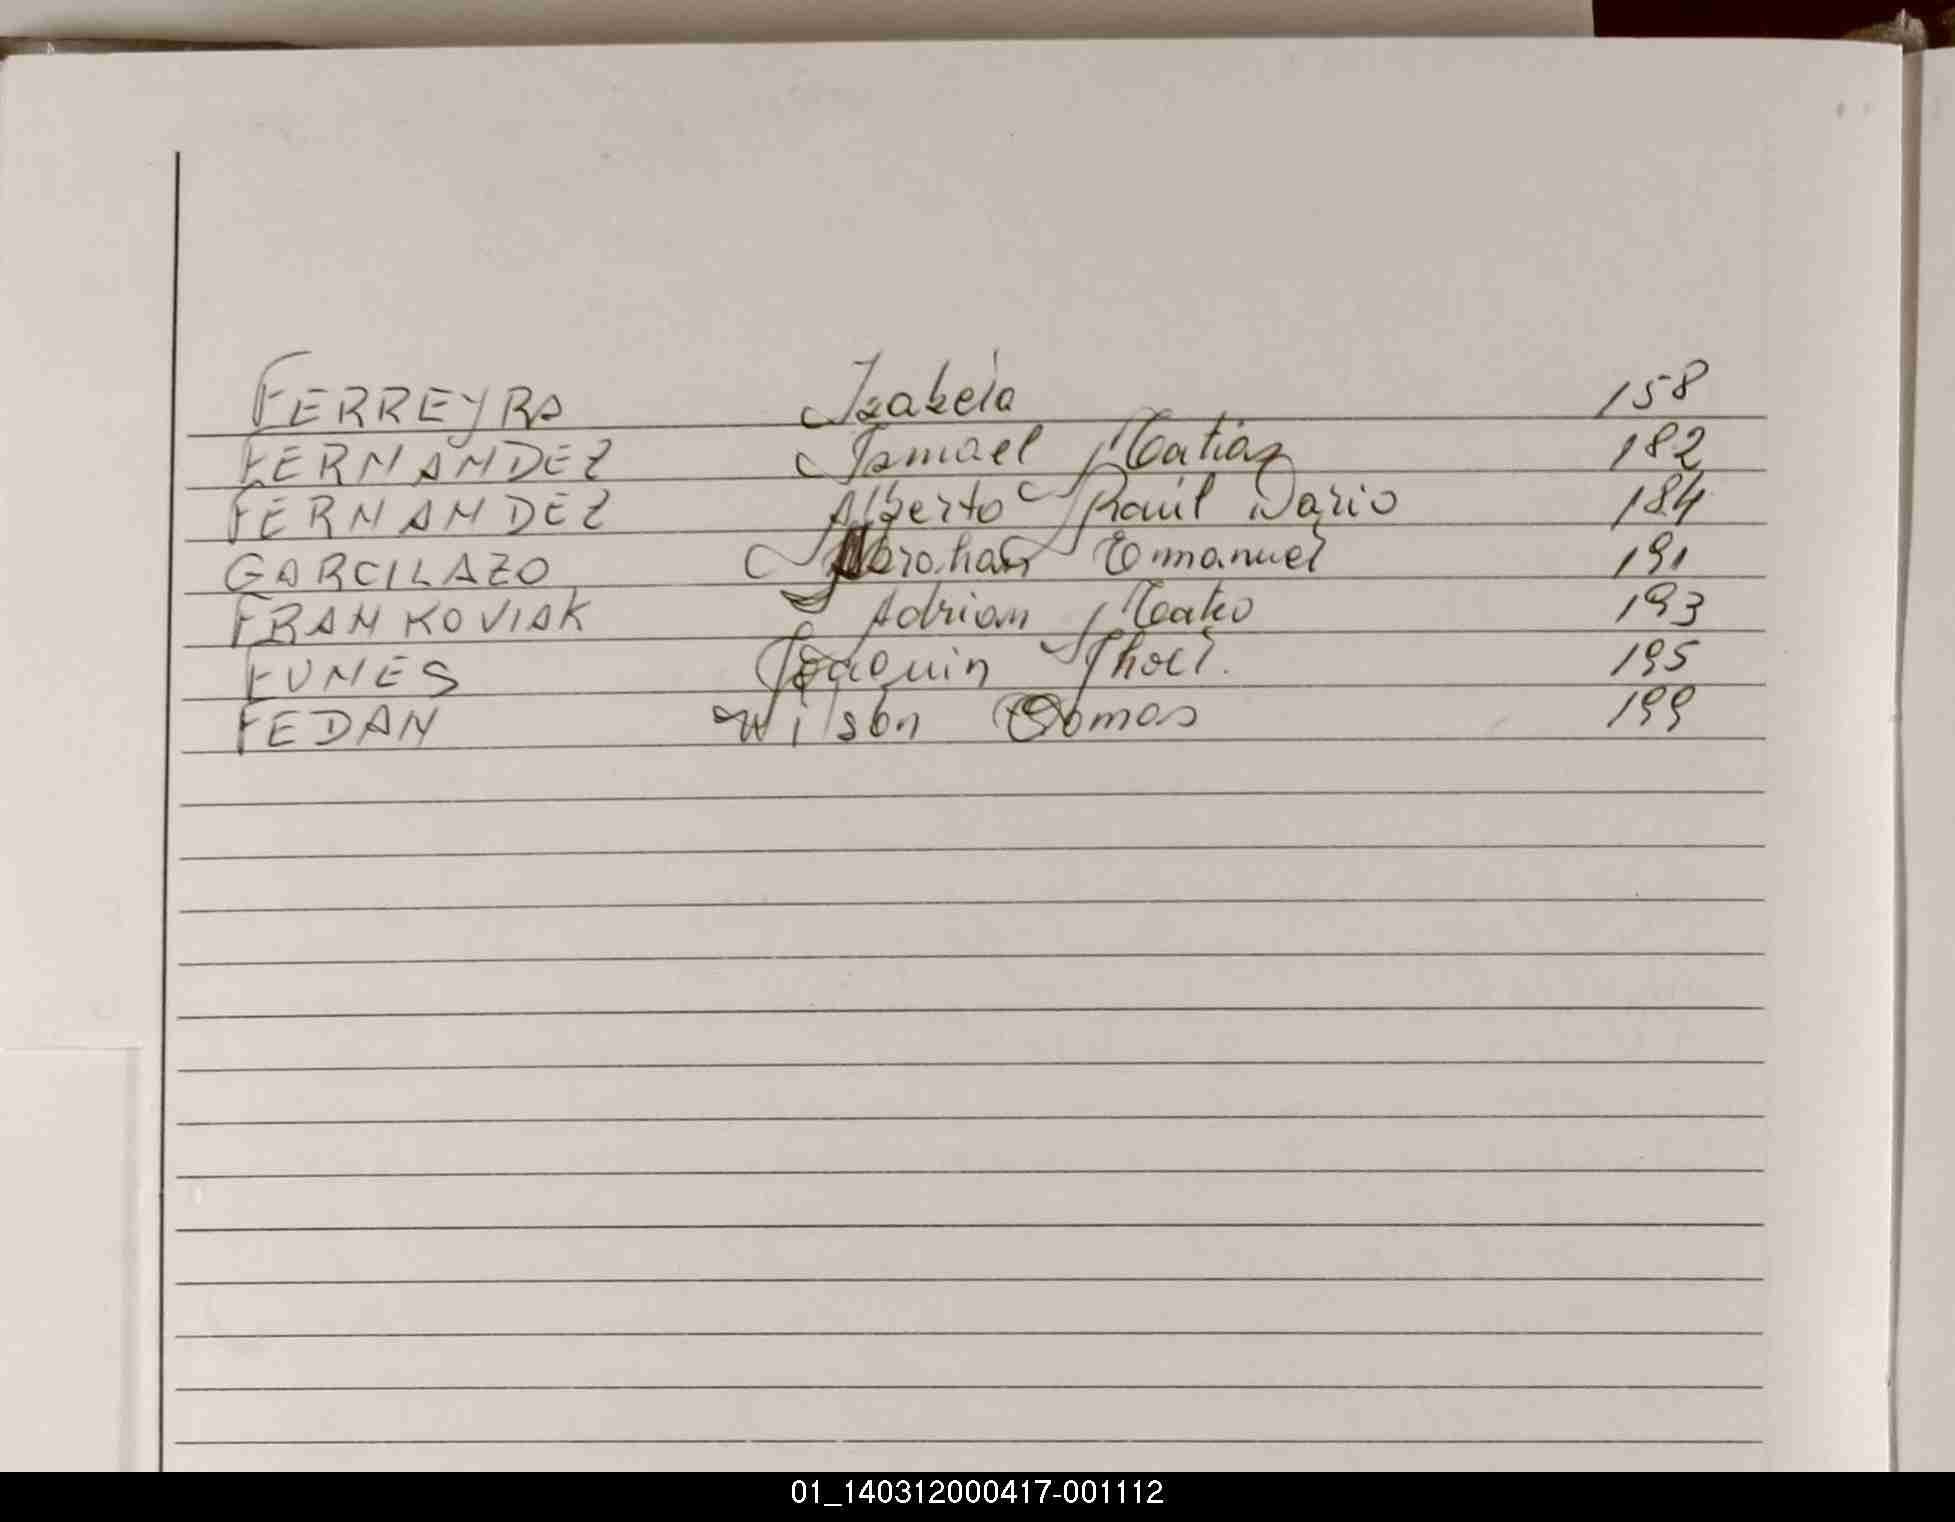 FERREYRA Izabela 158
FERNANDEZ Ismael Matias 182
FERNANDEZ Alberto Raúl Dario 184
GARCILAZO Abrahan Emmanuel 191
FRANKOVIAK Adrian 193
FUNES Joaquin 195
FEDAN Wilson 199
01_140312000417-001112